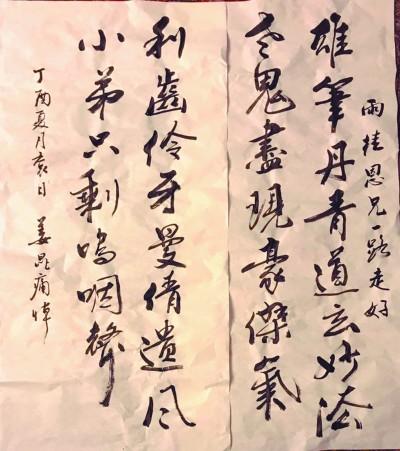 雨桂恩兄一路走好
雄筆丹青道玄妙法
老鬼盡現豪傑氣
利齒伶牙曼倩遺風
小弟只剩嗚咽聲
丁酉夏月哀日 姜昆痛悼